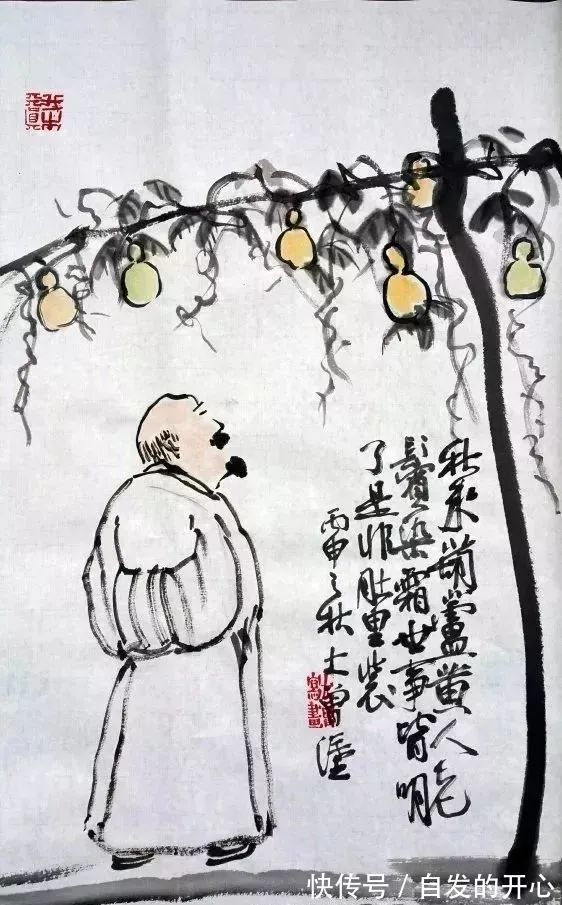 秋来葫蘆黄人老
鬢染霜世事皆明
了是非肚里装
丙申之秋大曾
寫畫
快传号 / 自发的开心